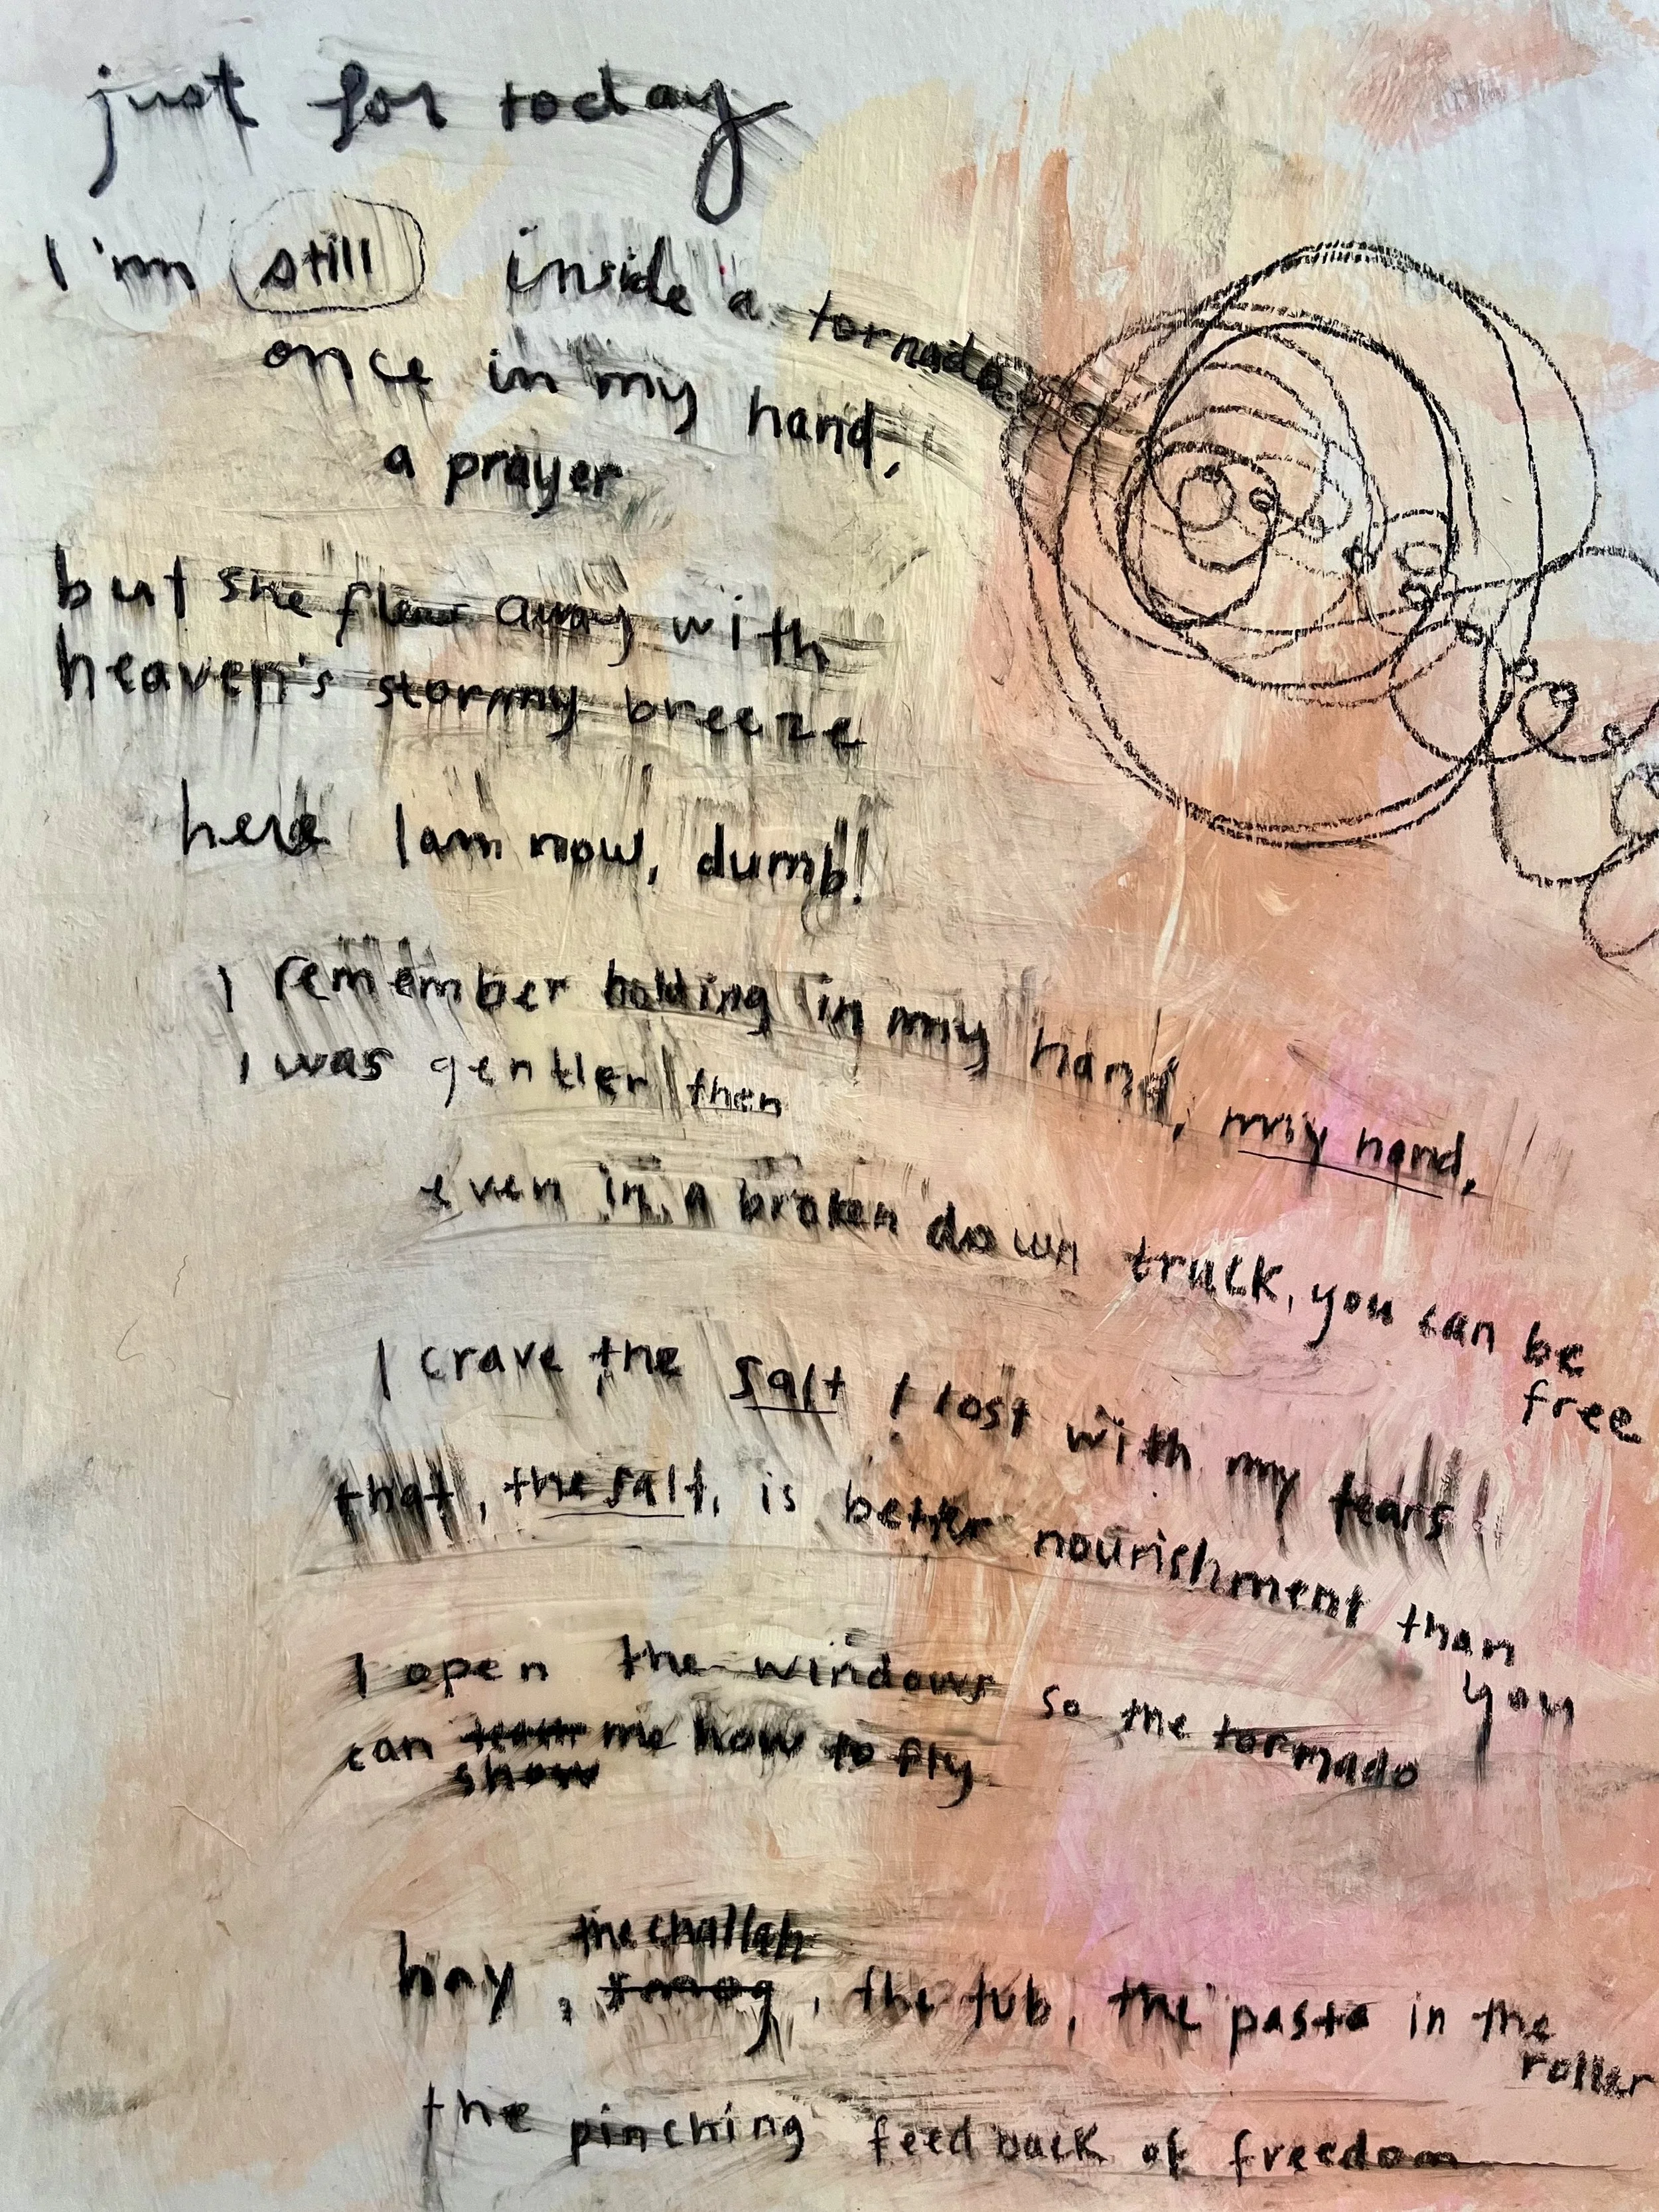 just for today
I'm still inside a tornado
once in my hand,
a prayer
but she flew away with
heaven's stormy breeze
here I am now, dumb!
I remember holding in my hand, my hand,
I was gentler then
even in a broken down truck, you can be
free
I crave the salt I lost with my tears
that, the salt, is better nourishment than
you
I open the windows so the tornado
can me how to fly
show
the challah
hay, , the tub, the pasta in the
roller
the pinching feedback of freedom